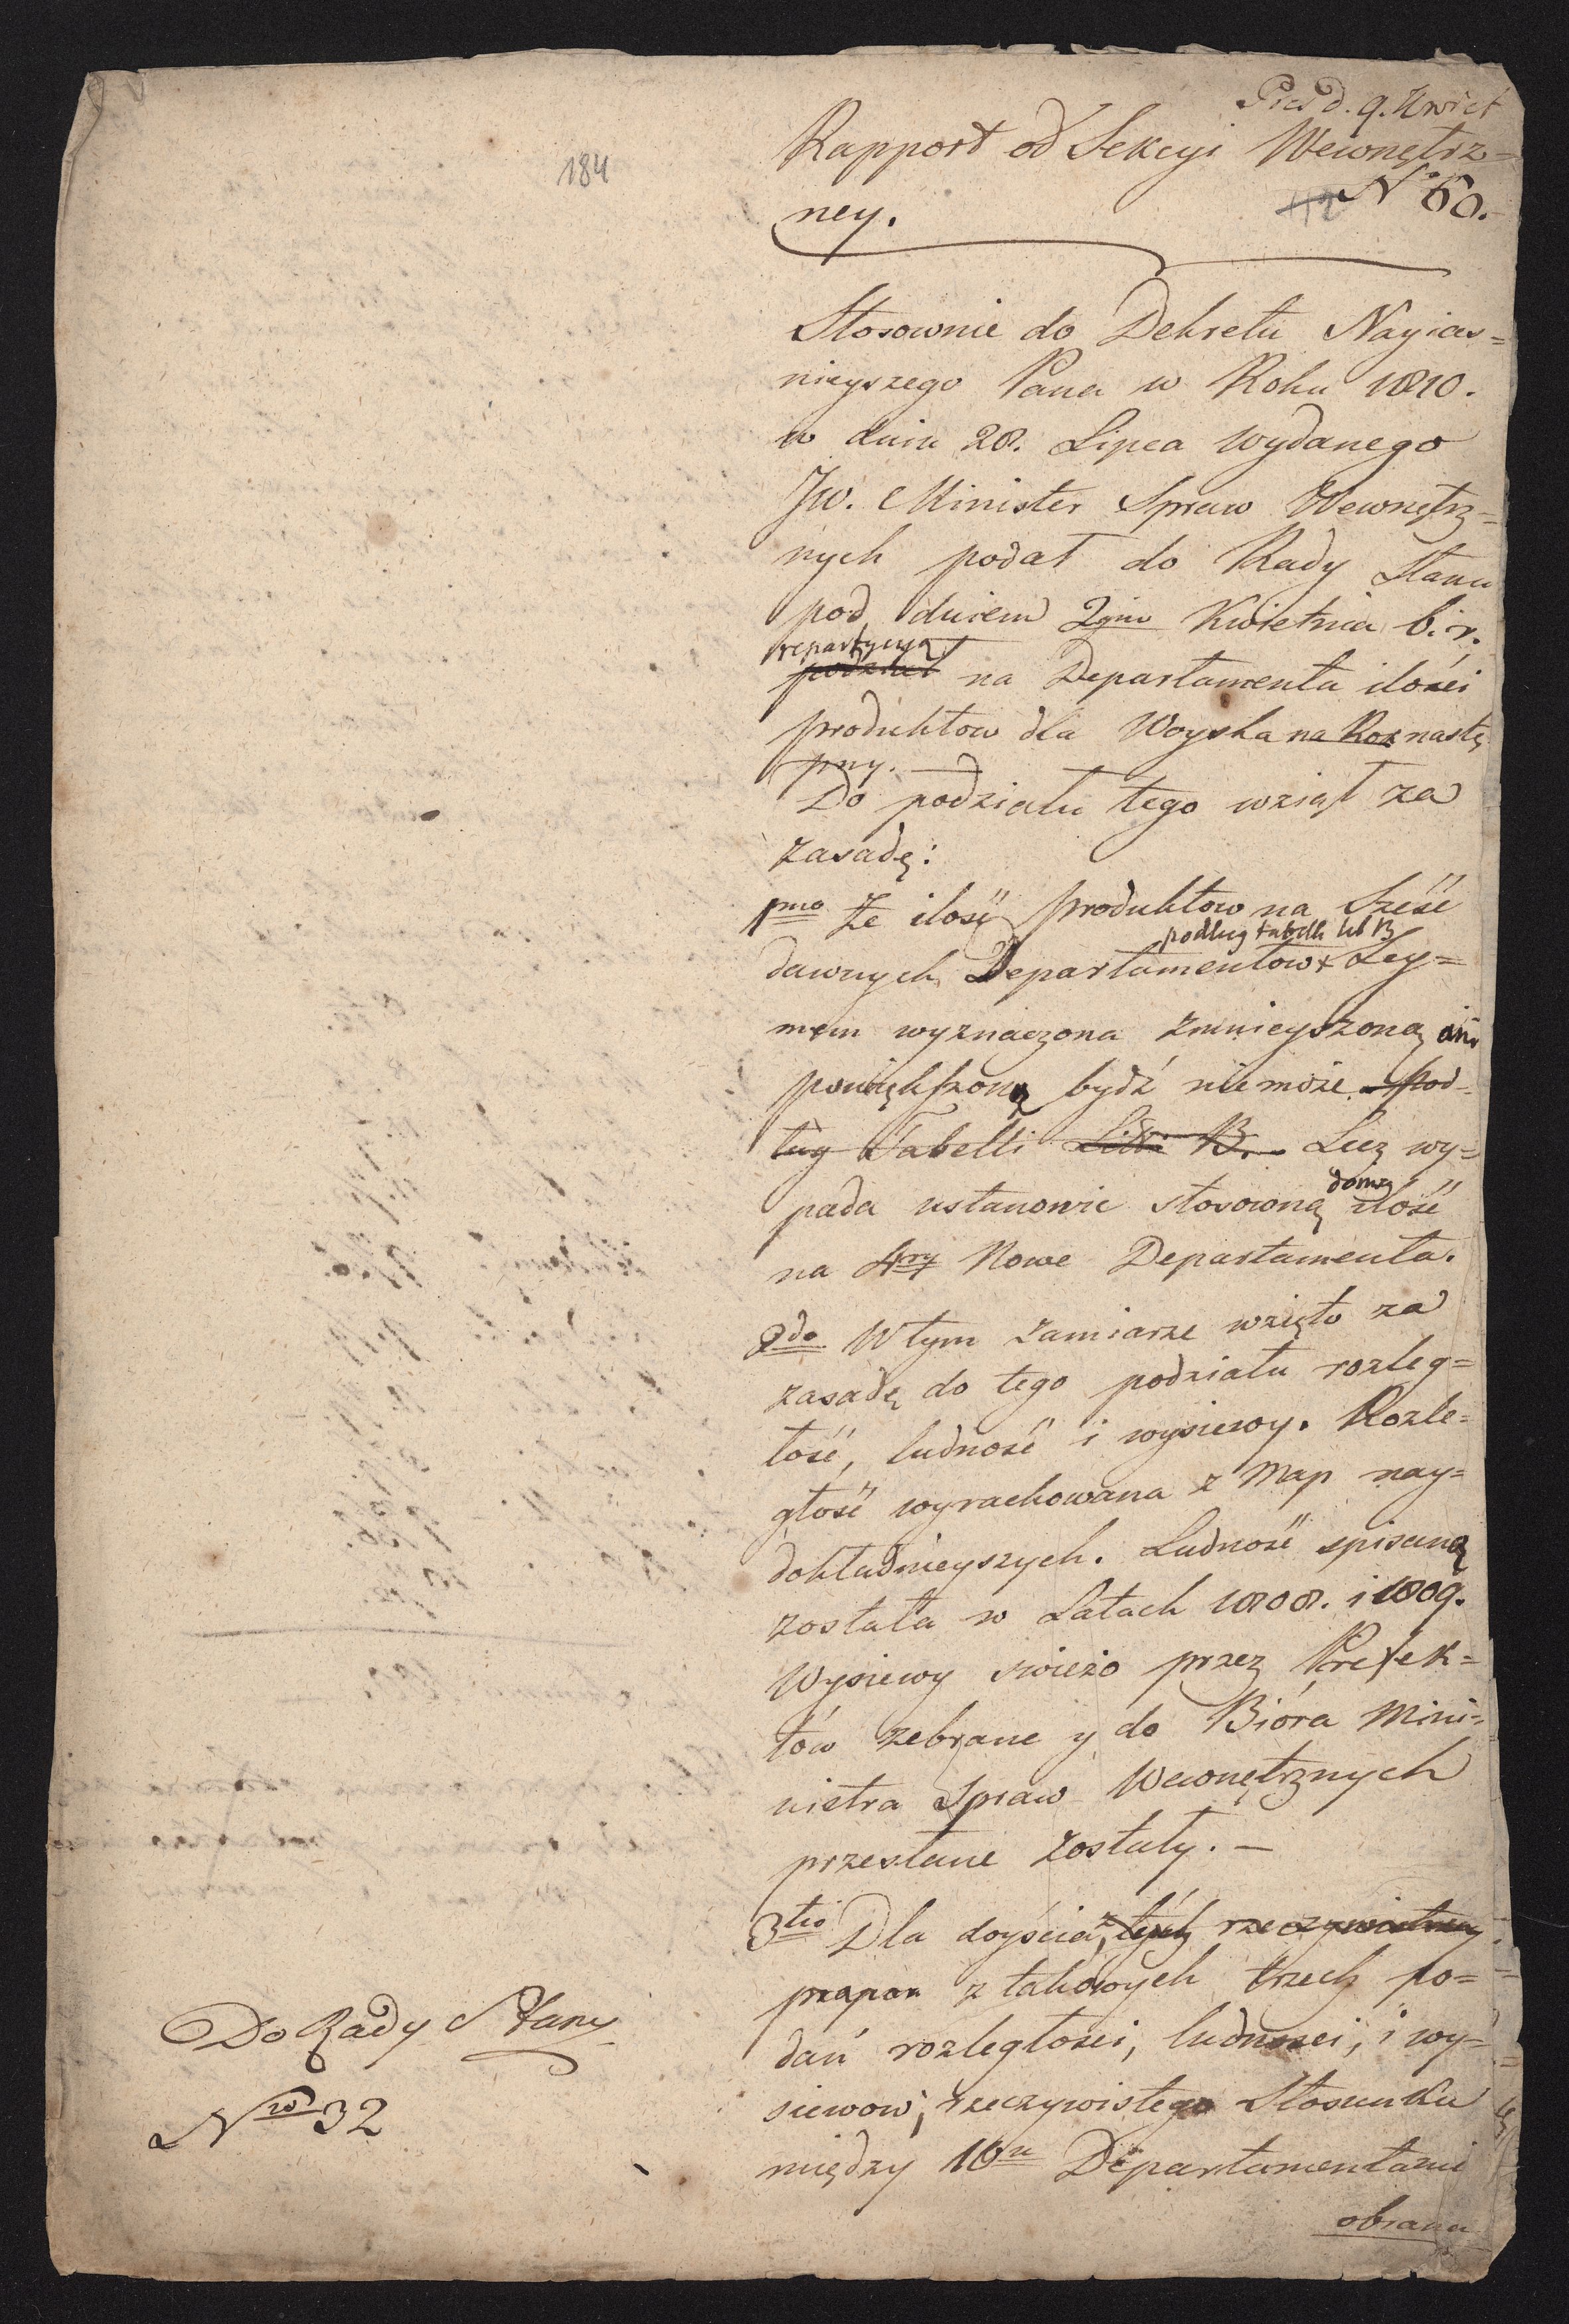 184
Pres d. 9. Kwiet
Rapport od Sekcyi Wewnętrz=
No 60.
ney.
Stosownie do Dekretu Nayias=
nieyszego Pana w Roku 1810.
w dniu 28. Lipca wydanego
JW. Minister Spraw Wewnętrz=
nych podał do Rady Stanu
pod dniem 2gim Kwietnia b. r.
repartycyą
podział na Departamenta ilości
produktow dla Woyska na Rok nastę
pny.
Do podziału tego wziął za
zasadę:
1mo Że ilość produktow na Sześć
podług tabelli lit B
dawnych Departamentow + Sey=
mem wyznaczona zmnieyszoną ani
powiększoną bydź nie może. Pod-
ług Tabelli Litt. B. Lecz wy=
domy
pada ustanowic stosowną ilość
na 4ry Nowe Departamenta.
2do W tym zamiarze wzięto za
zasadę do tego podziału rozleg=
łość, ludność i wysiewy. Rozle=
głość wyrachowana z Map nay=
dokładnieyszych. Ludność spisaną
została w Latach 1808. i 1809.
Wysiewy swieżo przez Prefek=
tów zebrane y do Bióra Mini=
nistra Spraw Wewnętrznych
przesłane zostały. —
3tio Dla doyścia z tych rzeczywistney
propor z takowych trzech po=
dań rozległości, ludności, i wy=
siewow, rzeczywistego Stosunku
między 10u Departamentami
obrana
Do Rady Stanu
Nro 32